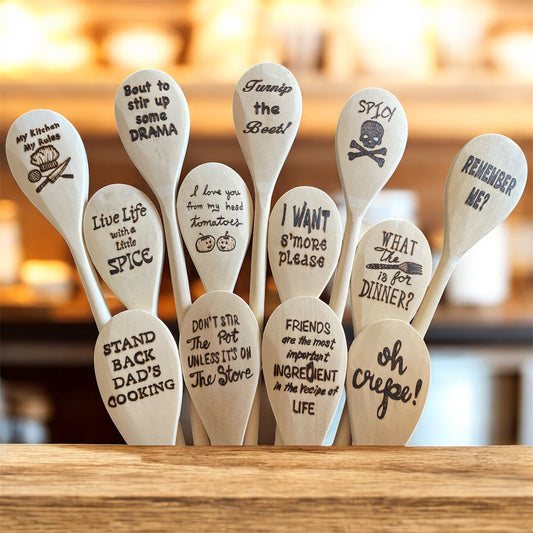 My Kitchen
My Rules
Bout to
stir up
some
DRAMA
Turnip
the
Beet!
SPICY
REMEMBER
ME?
Live Life
with a
Little
SPICE
I love you
from my head
tomatoes
I WANT
S'MORE
PLEASE
WHAT
THE
IS FOR
DINNER?
STAND
BACK
DAD'S
COOKING
DON'T STIR
The Pot
UNLESS IT'S ON
The Stove
FRIENDS
are the most
important
INGREDIENT
in the recipe of
LIFE
oh
crepe!